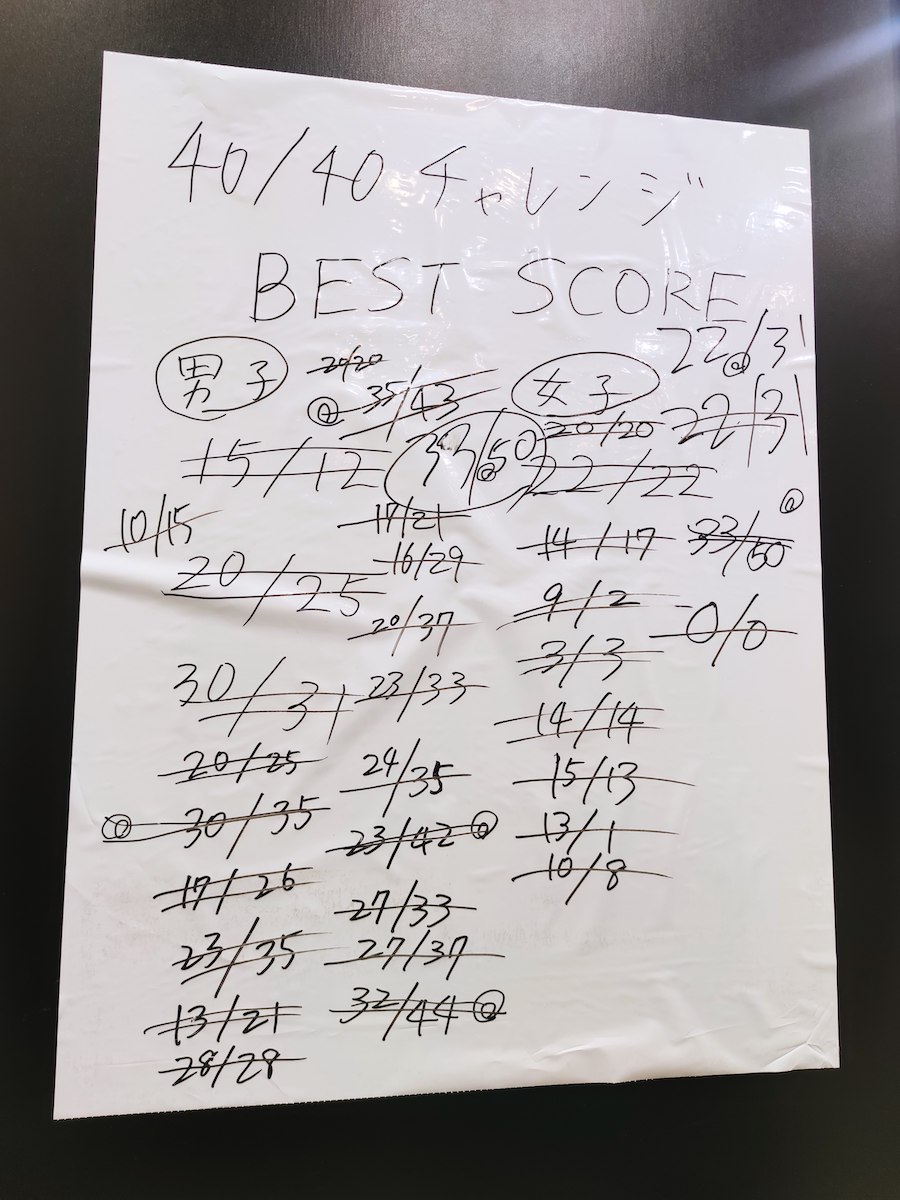 40/40 チャレンジ
BEST SCORE
男子
20/20
@ 35/43
15/12
39/50
@
10/15
17/21
16/29
20/25
20/37
30/31
23/33
20/25
24/35
@ 30/35
23/42 @
17/26
27/33
23/35
27/37
13/21
32/44 @
28/28
女子
22/31
@
20/20
22/31
22/22
@
14/17
33/50
9/2
0/0
3/3
14/14
15/13
13/1
10/8